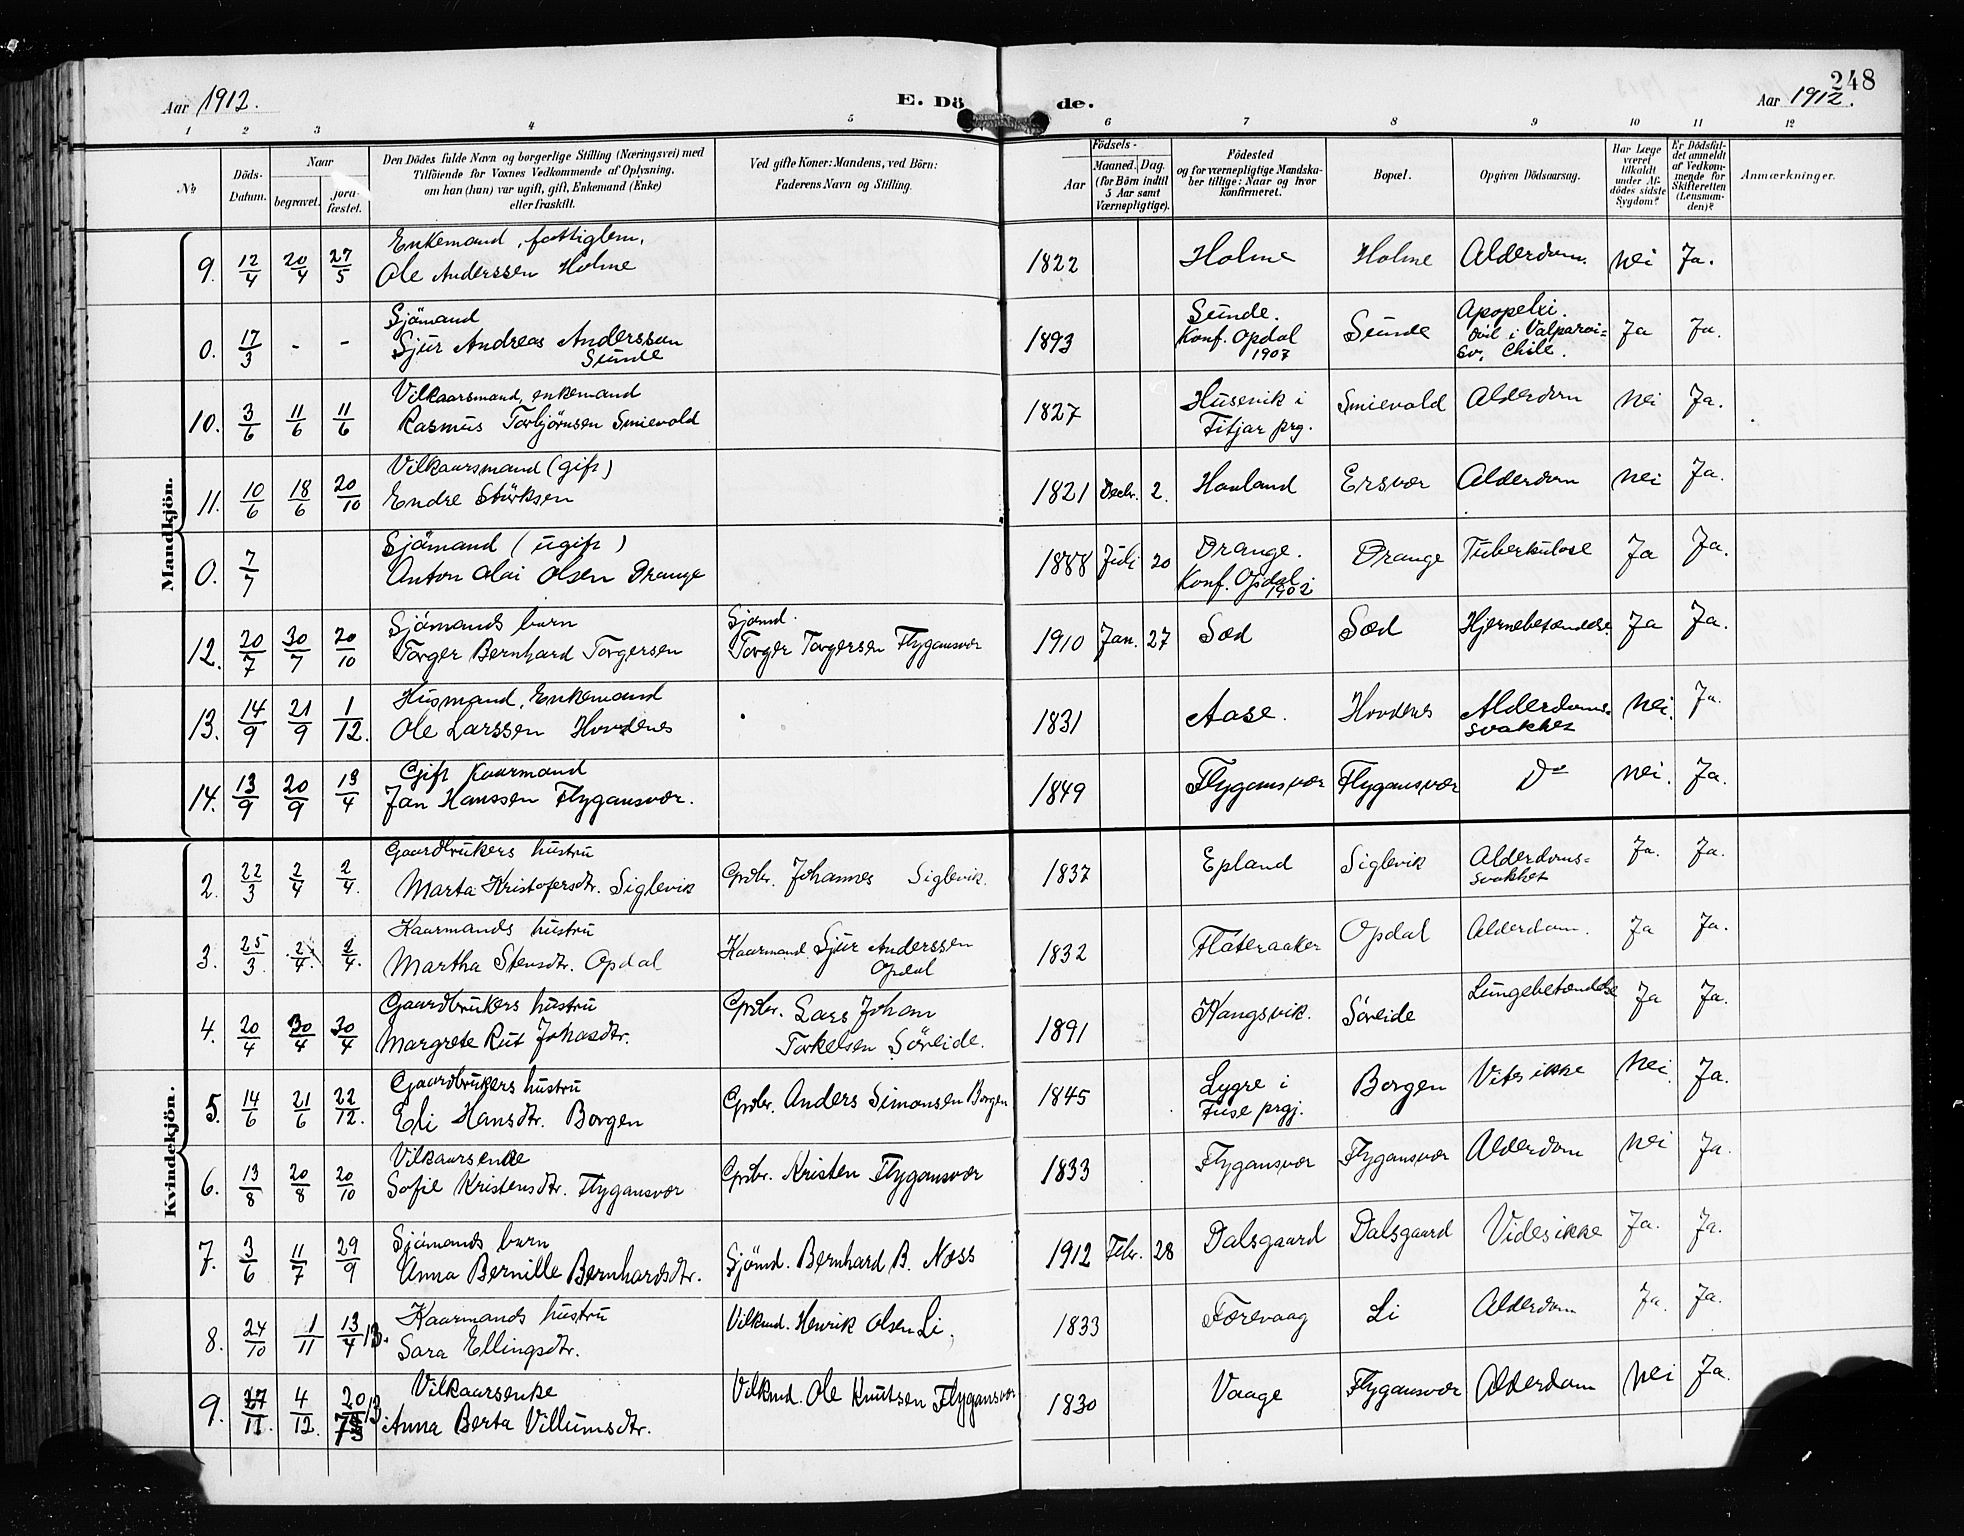 248
Aar 1912.
E. Dö
de.
Aar 1912.
1 2 3 4 5 6 7 8 9 10 11 12
No
Döds-Datum.
Naar
begravet.
jord-fæstet.
Den Dödes fulde Navn og borgerlige Stilling (Næringsvei) med
Tilföiende for Voxnes Vedkommende af Oplysning,
om han (hun) var ugift, gift, Enkemand (Enke)
eller fraskilt.
Ved gifte Koner: Mandens, ved Börn:
Faderens Navn og Stilling.
Födsels-
Aar
Maaned. Dag.
(for Börn indtil
5 Aar samt
Værnepligtige).
Födested
og for værnepligtige Mandska-
ber tillige: Naar og hvor
konfirmeret.
Bopæl.
Opgiven Dödsaarsag.
Har Læge
været
tilkaldt
under Af-
dödes sidste
Sygdom?
Er Dödsfal-
det anmeldt
af Vedkom-
mende for
Skifteretten
(Lensman-
den)?
Anmærkninger.
Mandkjön.
Enkemand, fattiglem.
9. 12/4 20/4 27/5 Ole Anderssen Holme 1822 Holme Holme Alderdom. Nei Ja.
Sjömand
0. 17/3 - - Sjur Andreas Anderssen
Sunde
1893 Sunde.
Konf. Opdal
1907
Sunde Apopelxi.
Död i Valparai-
so, Chile.
Ja Ja.
Vilkaarsmand, enkemand
10. 3/6 11/6 11/6 Rasmus Torbjörnsen Smievold 1827 Husevik i
Fitjar prg.
Smievold Alderdom Nei Ja.
Vilkaarsmand (gift)
11. 10/6 18/6 20/10 Endre Störksen 1821 Decbr. 2. Hauland Ersvær Alderdom Nei Ja.
Sjömand (ugift)
0. 7/7 Anton Olai Olsen Drange 1888 Juli 20 Drange.
Konf. Opdal
1902
Drange Tuberkulose Ja Ja.
Sjömands barn
12. 20/7 30/7 20/10 Torger Bernhard Torgersen Sjömd.
Torger Torgersen Flygansvær 1910 Jan. 27 Sæd Sæd Hjernebetændelse. Ja Ja.
Husmand, Enkemand
13. 14/9 21/9 1/12. Ole Larssen Hovdenes 1831 Aase. Hovdenes Alderdoms-
svakhet
Nei. Ja.
Gift Kaarmand
14. 13/9 20/9 13/4 Jan Hanssen Flygansvær. 1849 Flygansvær Flygansvær Do Nei. Ja.
Kvindekjön.
Gaardbrukers hustru
2. 22/3 2/4 2/4. Marta Kristofersdtr. Siglevik Grdbr. Johannes Siglevik. 1837 Epland Siglevik Alderdoms-
svakhet
Ja. Ja.
Kaarmands hustru
3. 25/3 2/4. 2/4. Martha Stensdtr. Opdal Kaarmand Sjur Anderssen
Opdal
1832 Flateraaker Opdal Alderdom. Ja Ja.
Gaardbrukers hustru
4. 20/4 30/4 30/4 Margrete Rut Johasdtr. Grdbr. Lars Johan
Torkelsen Söreide.
1891 Kangsvik. Söreide Lungebetændelse Ja Ja.
Gaardbrukers hustru
5. 14/6 21/6 22/12. Eli Hansdtr. Borgen Grdbr. Anders Simonsen Borgen 1845 Lygre i
Fuse prgj.
Borgen Vites ikke Nei. Ja.
Vilkaarsenke
6. 13/8 20/8 20/10 Sofie Kristensdtr. Flygansvær Grdbr. Kristen Flygansvær 1833 Flygansvær Flygansvær Alderdom Nei Ja.
Sjömands barn
7. 3/6 11/7 29/9 Anna Bernille Bernhardsdtr. Sjömd. Bernhard B. Næss 1912 Febr. 28 Dalsgaard Dalsgaard Vides ikke Ja. Ja.
Kaarmands hustru
8. 24/10 1/11 13/4 13. Sara Ellingsdtr. Vilkmd. Henrik Olsen Li. 1833 Færevaag Li Alderdom Ja. Ja.
Vilkaarsenke
9. 27/11. 4/12. 20 13 Anna Berta Villumsdtr. Vilkmd. Ole Knutsen Flygansvær 1830 Vaage Flygansvær Alderdom Nei Ja.